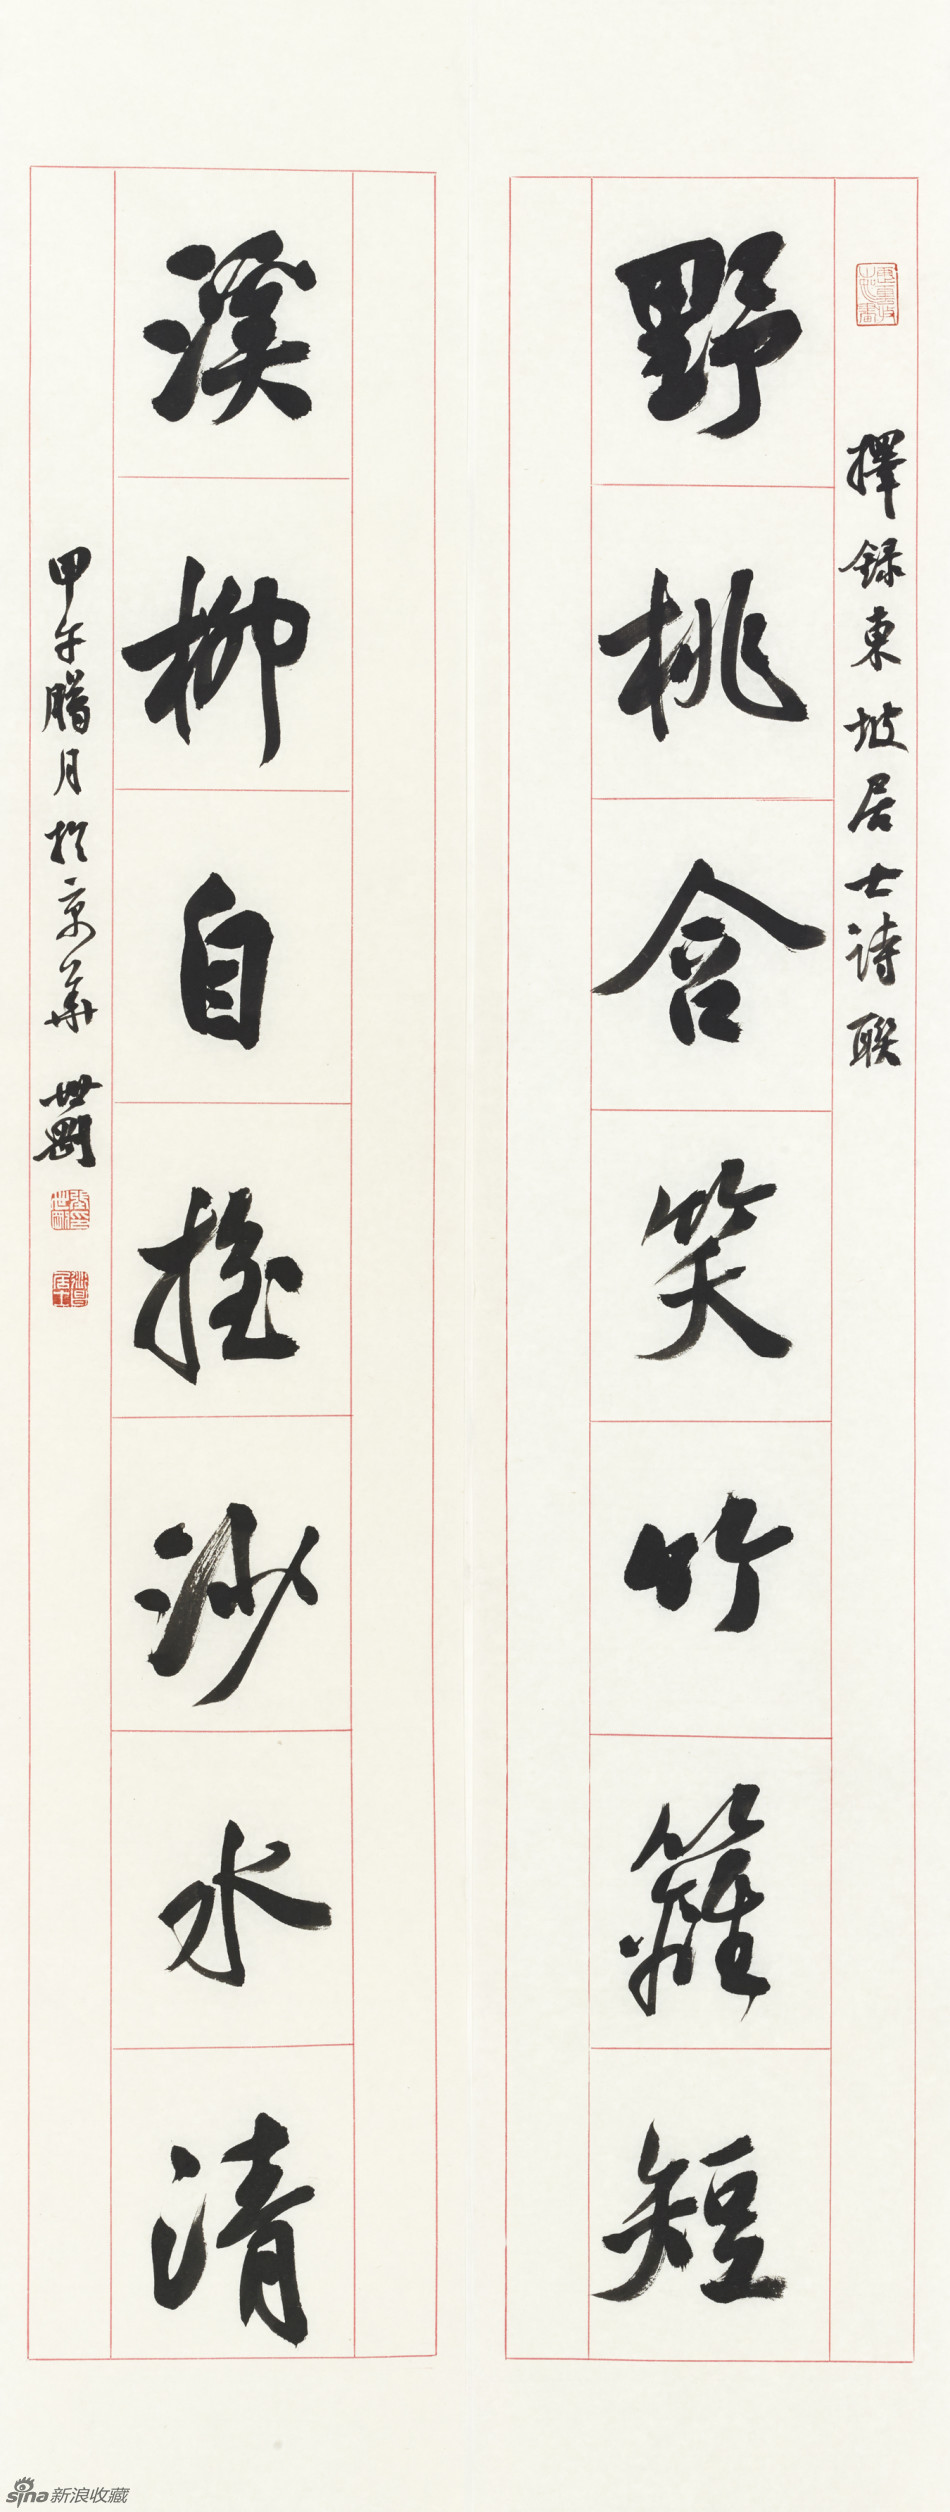 擇録東坡居士诗联
野桃含笑竹籬短
溪柳自摇沙水清
甲午腊月於京華 世剛
sina新浪收藏